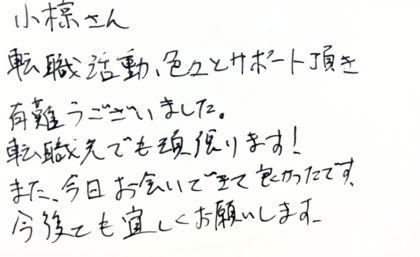 小椋さん
転職活動、色々とサポート頂き
有難うございました。
転職先でも頑張ります!
また、今日お会いできて良かったです。
今後とも宜しくお願いします。